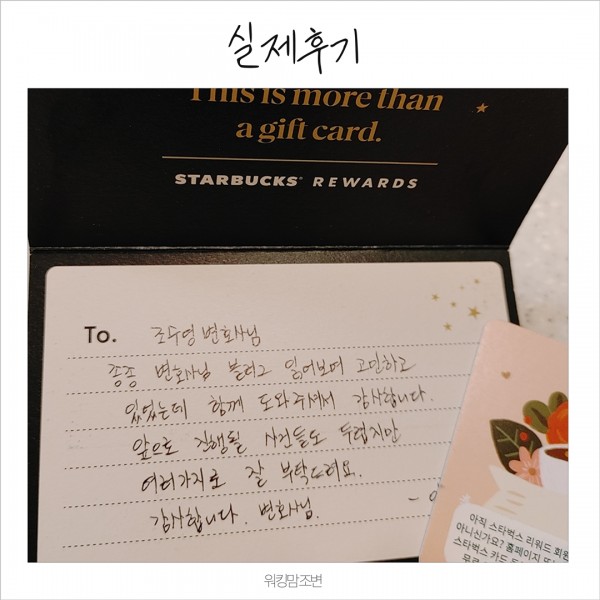 실제후기
This is more than
a gift card.
STARBUCKS® REWARDS
To. 조수영 변호사님
종종 변호사님 블로그 읽어보며 고민하고
있었는데 함께 도와주셔서 감사합니다.
앞으로 진행될 사건들도 두렵지만
여러가지로 잘 부탁드려요.
감사합니다. 변호사님.
아직 스타벅스 리워드 회원
아니신가요? 홈페이지
스타벅스 카드
워킹맘조변